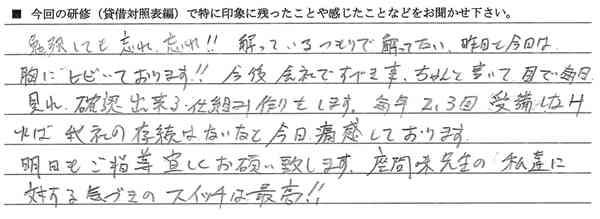 ■ 今回の研修（貸借対照表編）で特に印象に残ったことや感じたことなどをお聞かせ下さい。
勉強しても忘れ、忘れ!! 解っているつもりで解ってない、昨日と今日は
胸にヒビいております!! 今後会社ですべき事、ちゃんと書いて目で毎日
見れ、確認出来る仕組み作りをします。毎年2,3回受講しなけ
れば我社の存続はないなと今日痛感しております。
明日もご指導宜しくお願い致します。座間味先生の私達に
対する気づきのスイッチは最高!!